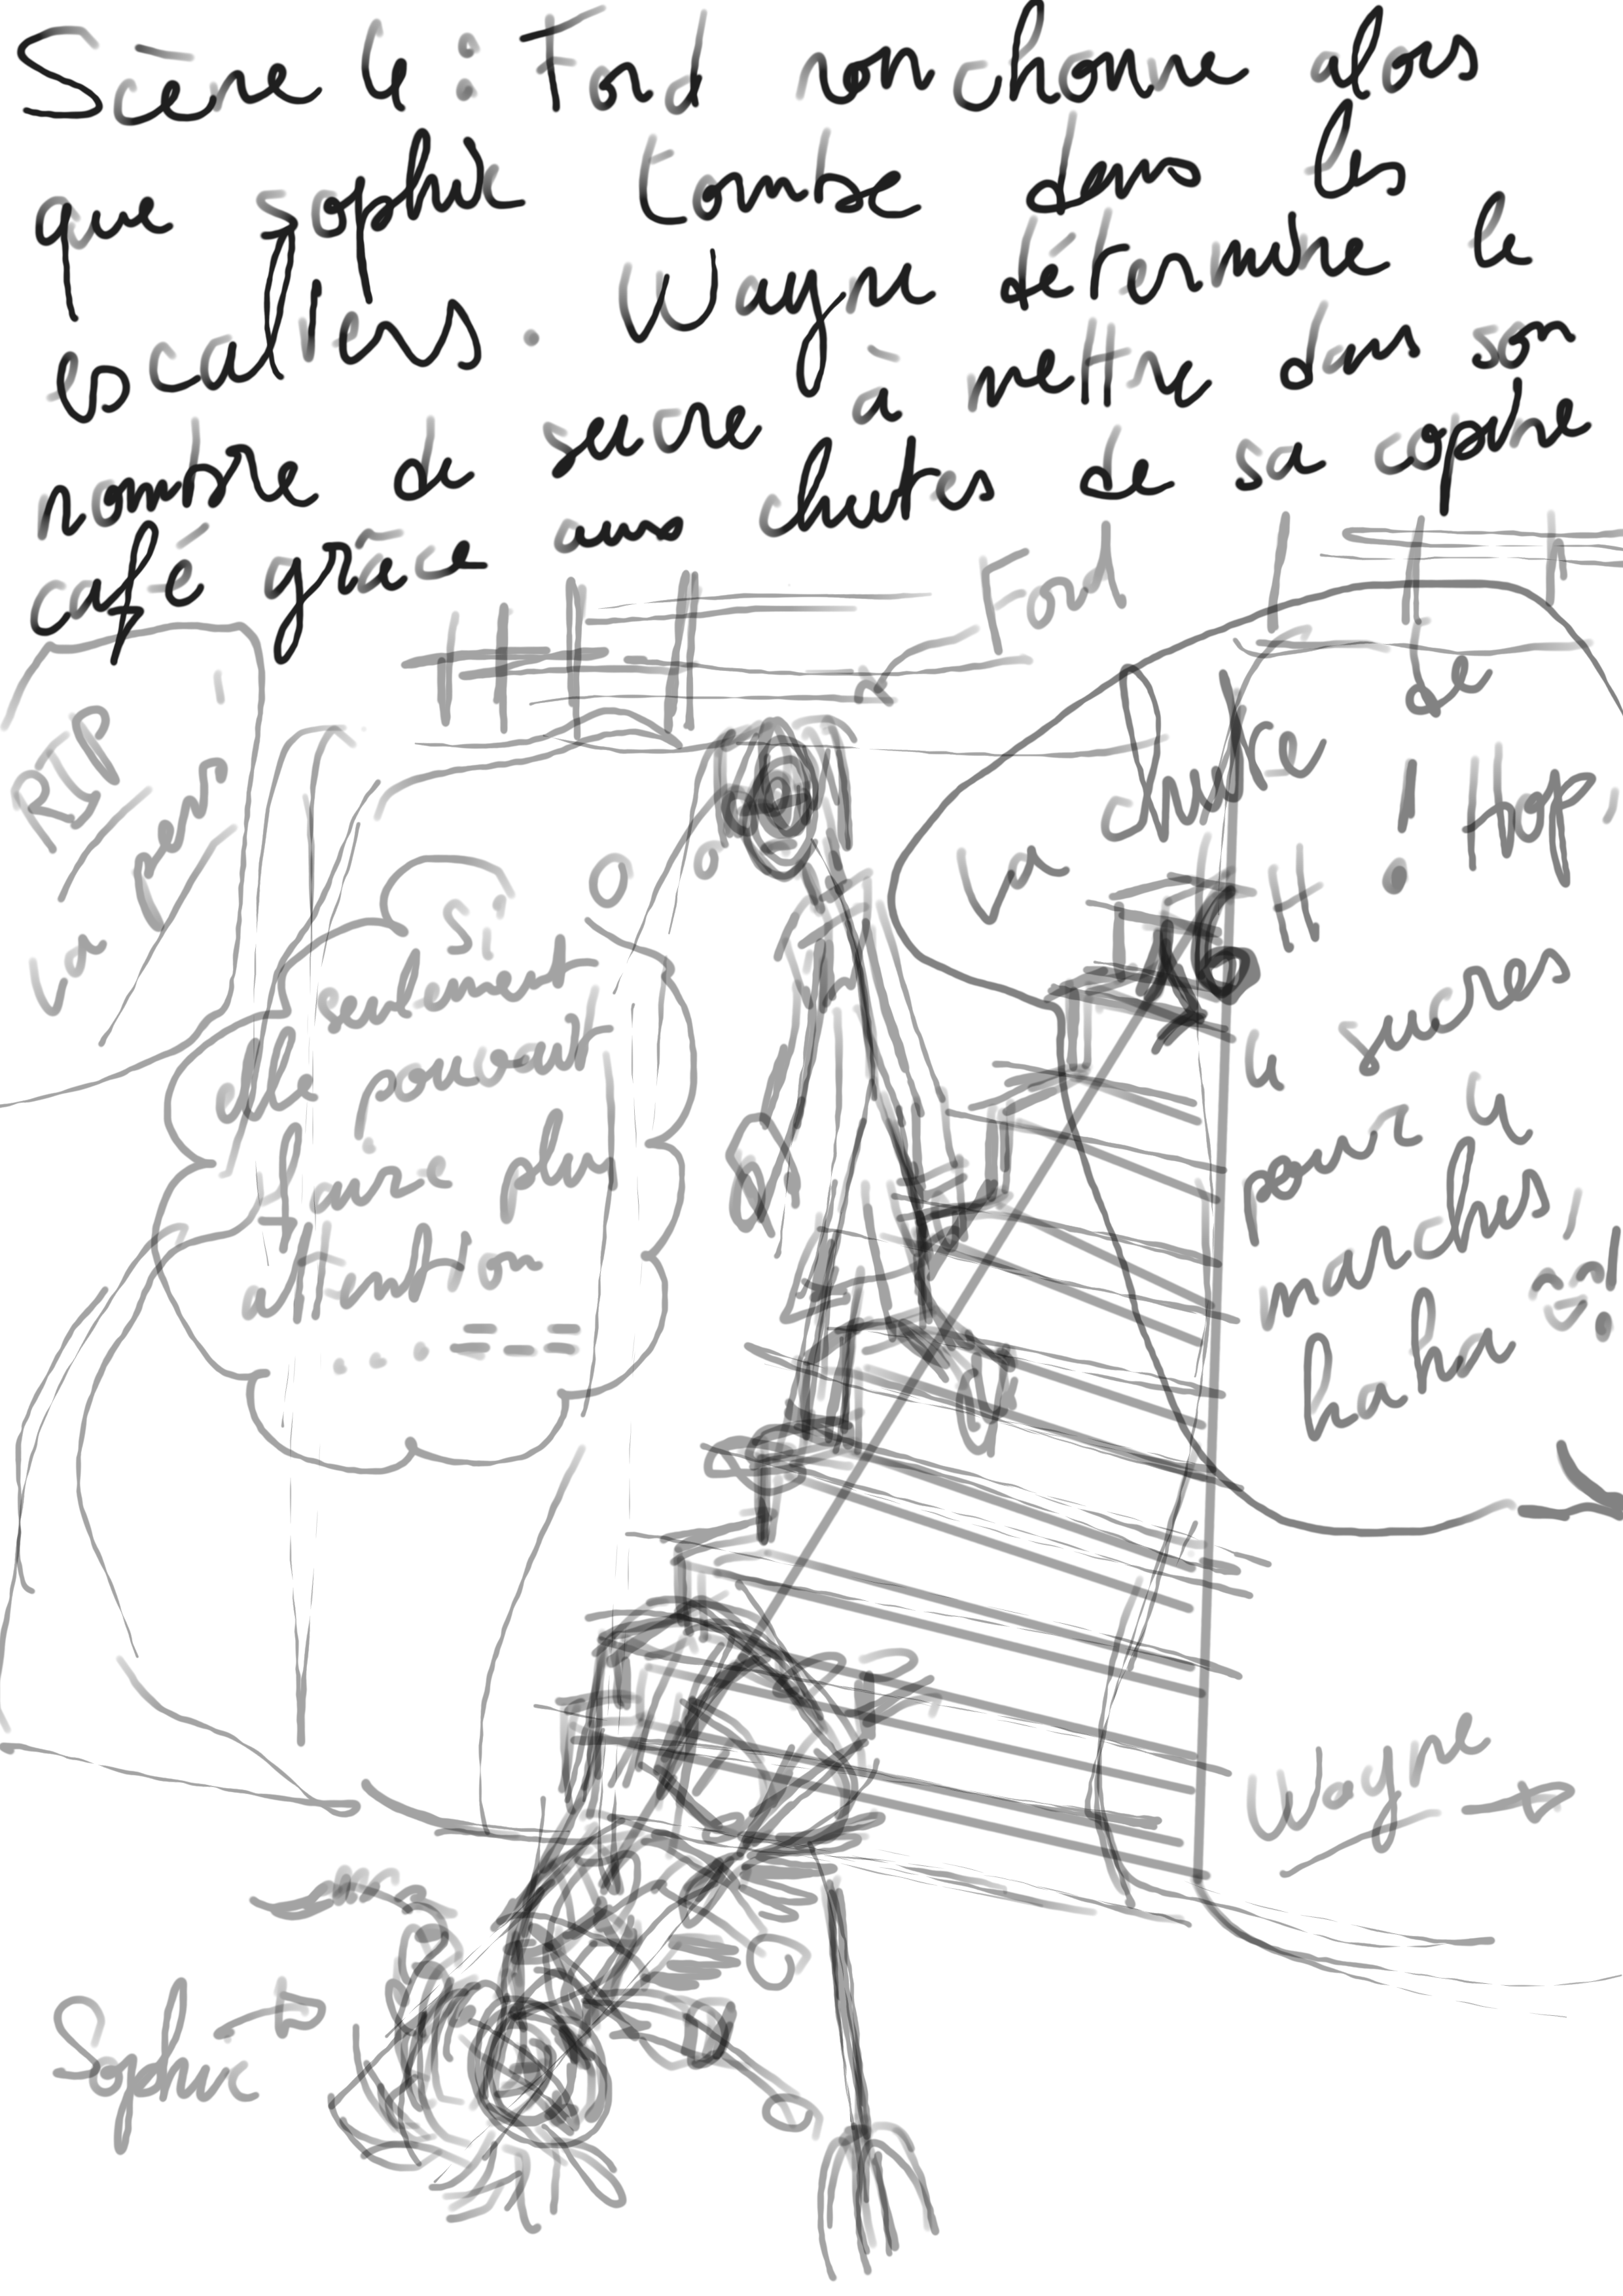 Scène 6 : Ford ronchonne alors
que sophie tombe dans les
escaliers. Wayne détermine le
nombre de sucre à mettre dans son
café grâce aux chutes de sa copine
Ford
RIP
La prof
Si
seulement
elle pouvait
faire plus
attention
. . . ---
La chute de
16 H ! Hop,
4 sucres
pour 4
marches,
haha !
Wayne
Sophie